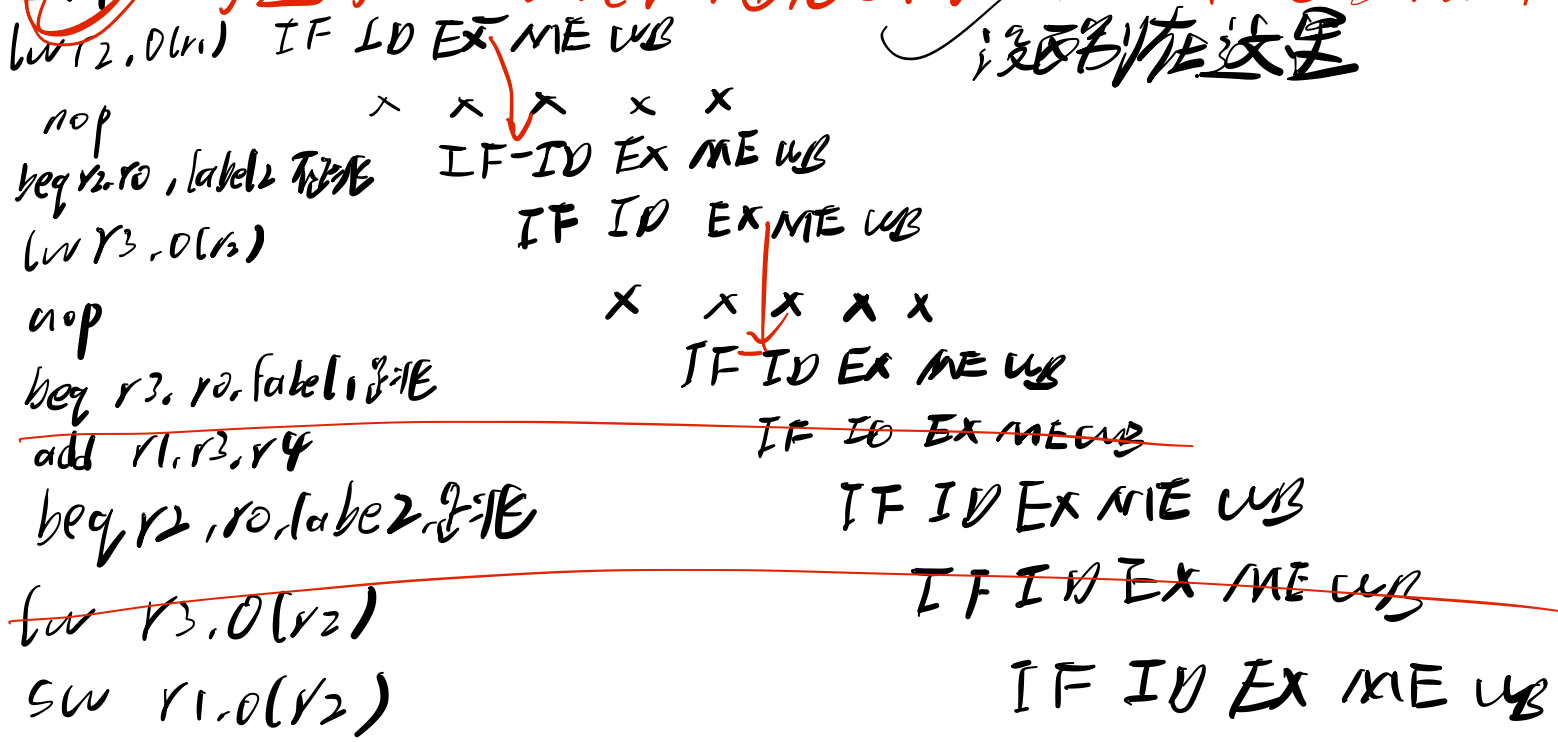 lw r2,0(r1) IF ID EX ME WB
没画在这里
nop × × × × ×
beq r2,r0,label2 IF ID EX ME WB
lw r3,0(r2) IF ID EX ME WB
nop × × × × ×
beq r3,r0,label1 IF ID EX ME WB
add r1,r3,r4 IF ID EX ME WB
beq r2,r0,labe2 IF ID EX ME WB
lw r3,0(r2) IF ID EX ME WB
sw r1,0(r2) IF ID EX ME WB